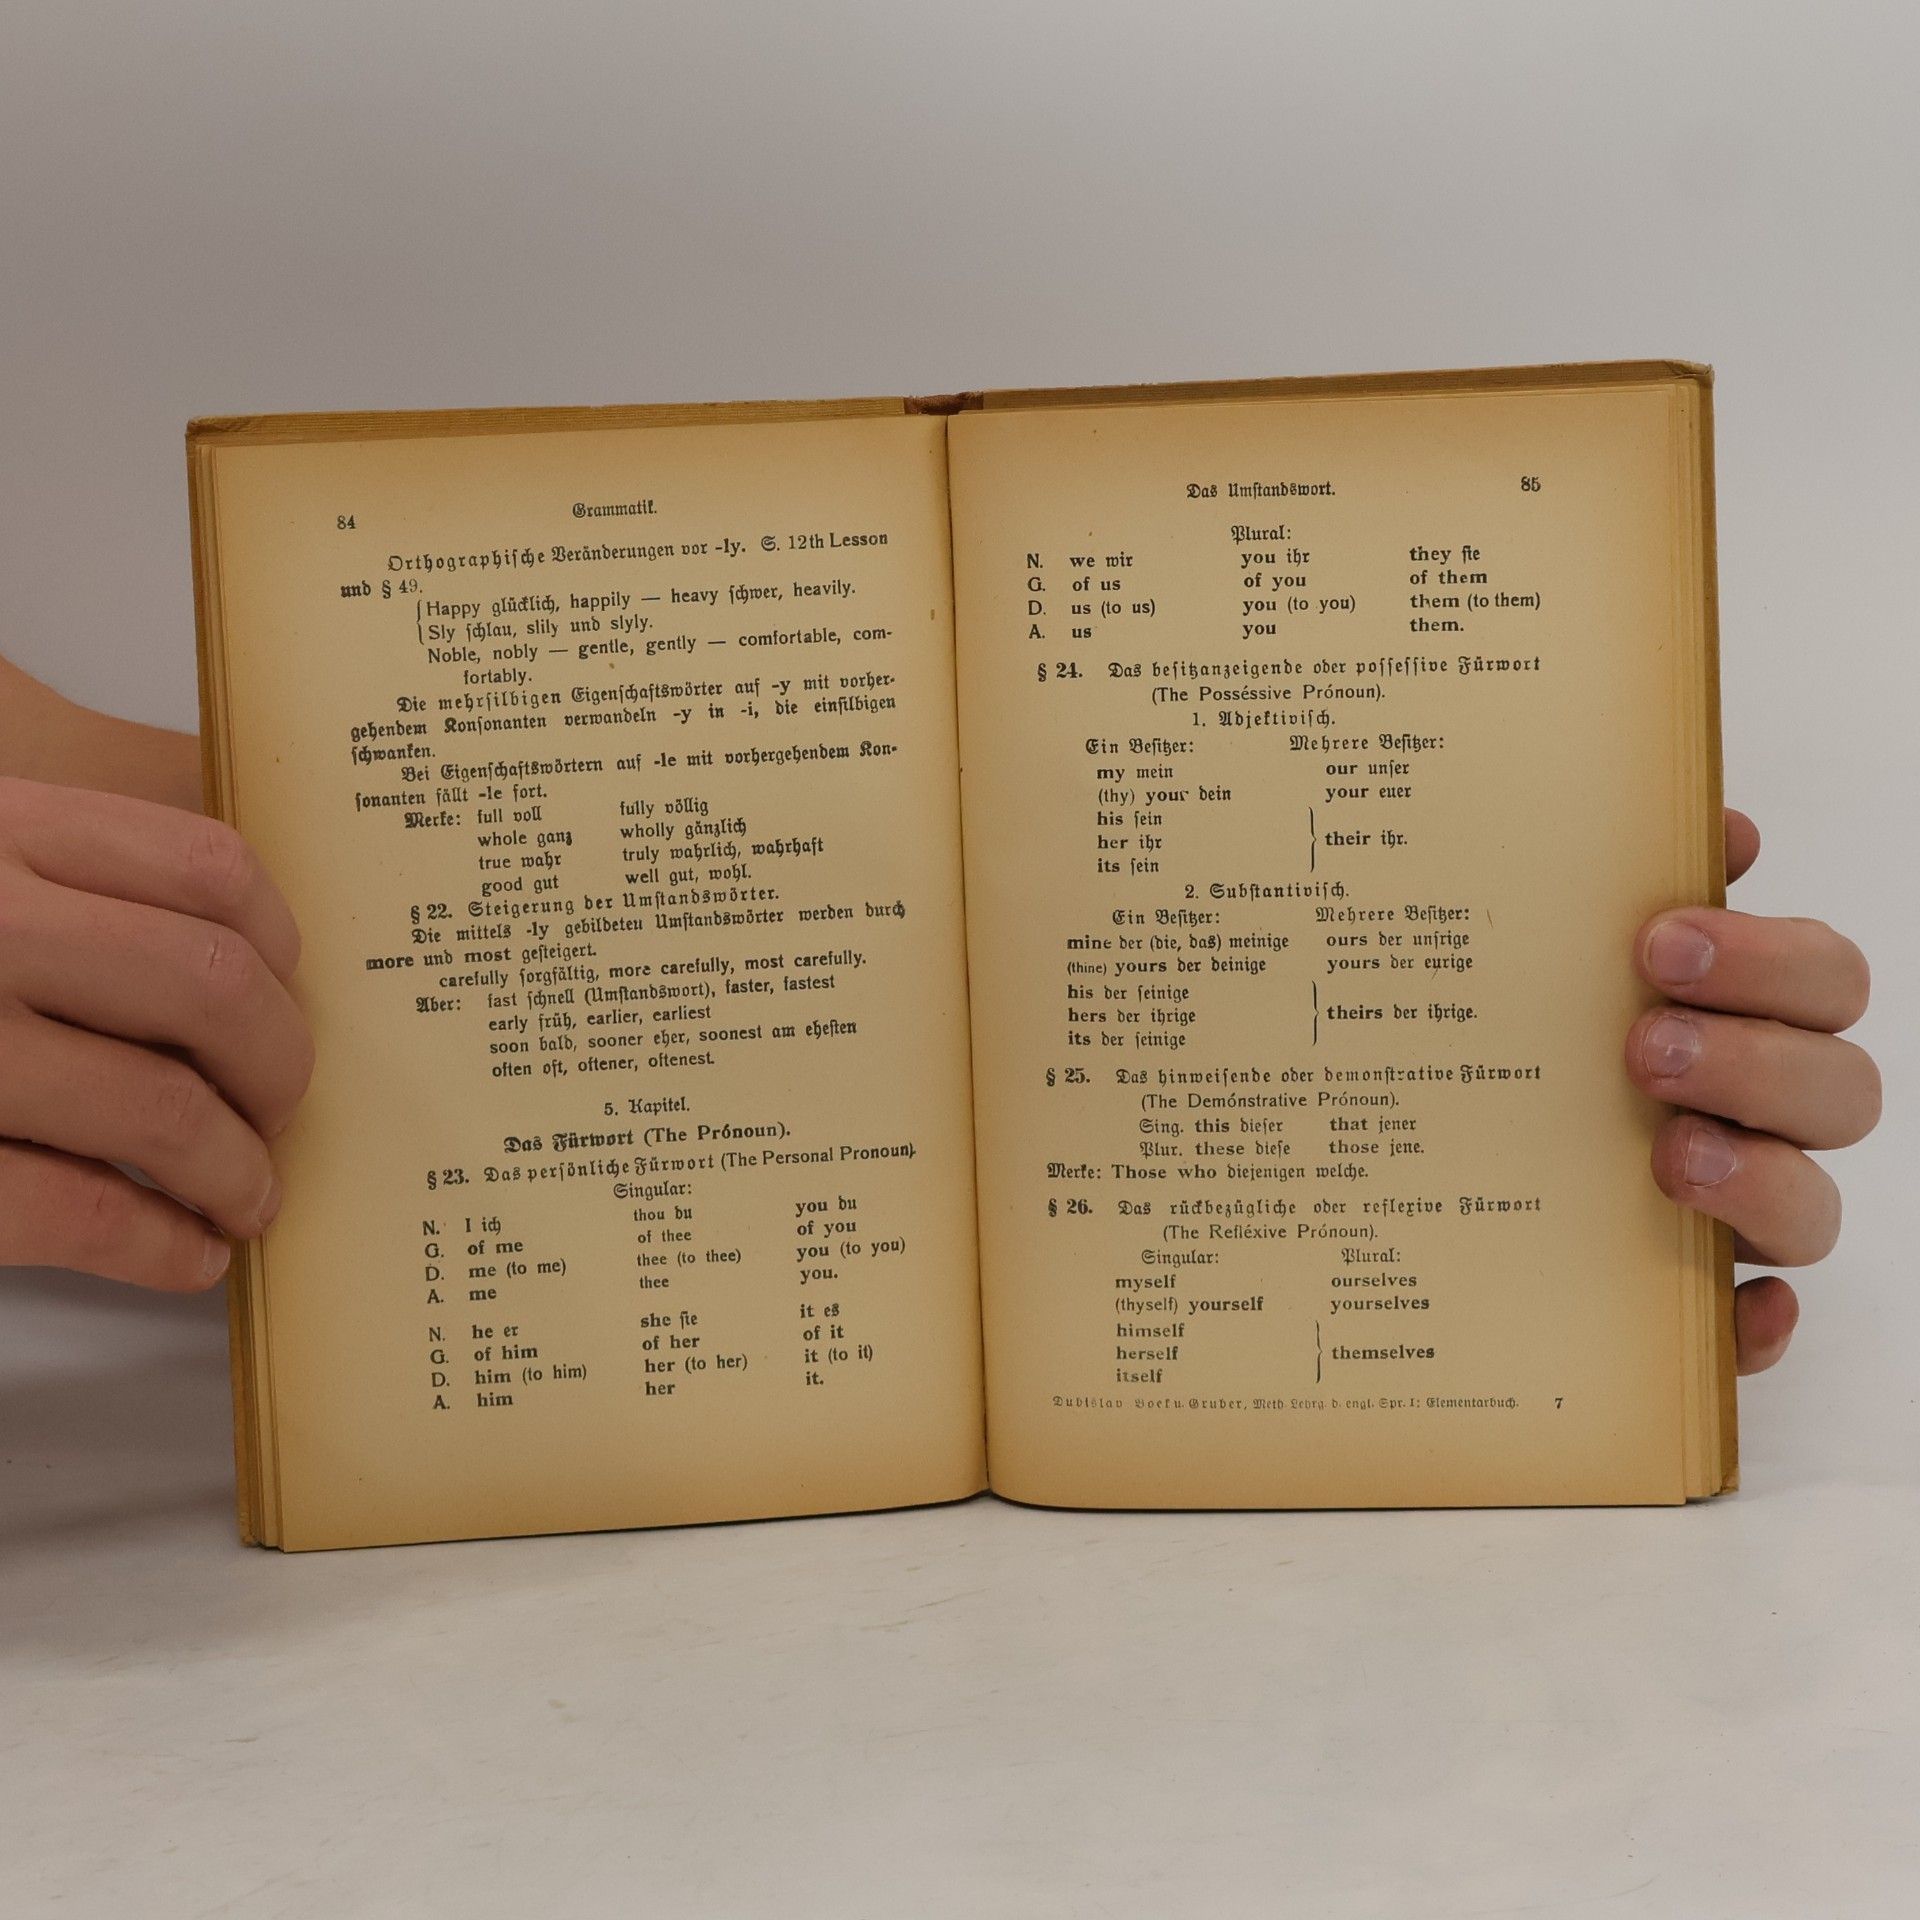 84
Grammatik.
Orthographische Veränderungen vor -ly. S. 12th Lesson
und § 49.
Happy glücklich, happily — heavy schwer, heavily.
Sly schlau, slily und slyly.
Noble, nobly — gentle, gently — comfortable, com-
fortably.
Die mehrsilbigen Eigenschaftswörter auf -y mit vorher-
gehendem Konsonanten verwandeln -y in -i, die einsilbigen
schwanken.
Bei Eigenschaftswörtern auf -le mit vorhergehendem Kon-
sonanten fällt -le fort.
Merke: full voll fully völlig
whole ganz wholly gänzlich
true wahr truly wahrlich, wahrhaft
good gut well gut, wohl.
§ 22. Steigerung der Umstandswörter.
Die mittels -ly gebildeten Umstandswörter werden durch
more und most gesteigert.
carefully sorgfältig, more carefully, most carefully.
Aber: fast schnell (Umstandswort), faster, fastest
early früh, earlier, earliest
soon bald, sooner eher, soonest am ehesten
often oft, oftener, oftenest.
5. Kapitel.
Das Fürwort (The Prónoun).
§ 23. Das persönliche Fürwort (The Personal Pronoun).
Singular:
N. I ich thou du you du
G. of me of thee of you
D. me (to me) thee (to thee) you (to you)
A. me thee you.
N. he er she sie it es
G. of him of her of it
D. him (to him) her (to her) it (to it)
A. him her it.
Das Umstandswort.
85
Plural:
N. we wir you ihr they sie
G. of us of you of them
D. us (to us) you (to you) them (to them)
A. us you them.
§ 24. Das besitzanzeigende oder possessive Fürwort
(The Posséssive Prónoun).
1. Adjektivisch.
Ein Besitzer: Mehrere Besitzer:
my mein our unser
(thy) your dein your euer
his sein
her ihr their ihr.
its sein
2. Substantivisch.
Ein Besitzer: Mehrere Besitzer:
mine der (die, das) meinige ours der unsrige
(thine) yours der deinige yours der eurige
his der seinige
hers der ihrige theirs der ihrige.
its der seinige
§ 25. Das hinweisende oder demonstrative Fürwort
(The Demónstrative Prónoun).
Sing. this dieser that jener
Plur. these diese those jene.
Merke: Those who diejenigen welche.
§ 26. Das rückbezügliche oder reflexive Fürwort
(The Refléxive Prónoun).
Singular: Plural:
myself ourselves
(thyself) yourself yourselves
himself
herself themselves
itself
Dubislav Boek u. Gruber, Meth. Lehrg. d. engl. Spr. I: Elementarbuch. 7